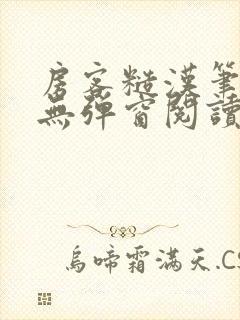 房客糙漢筆
無彈窗閱讀
烏啼霜滿天.CS